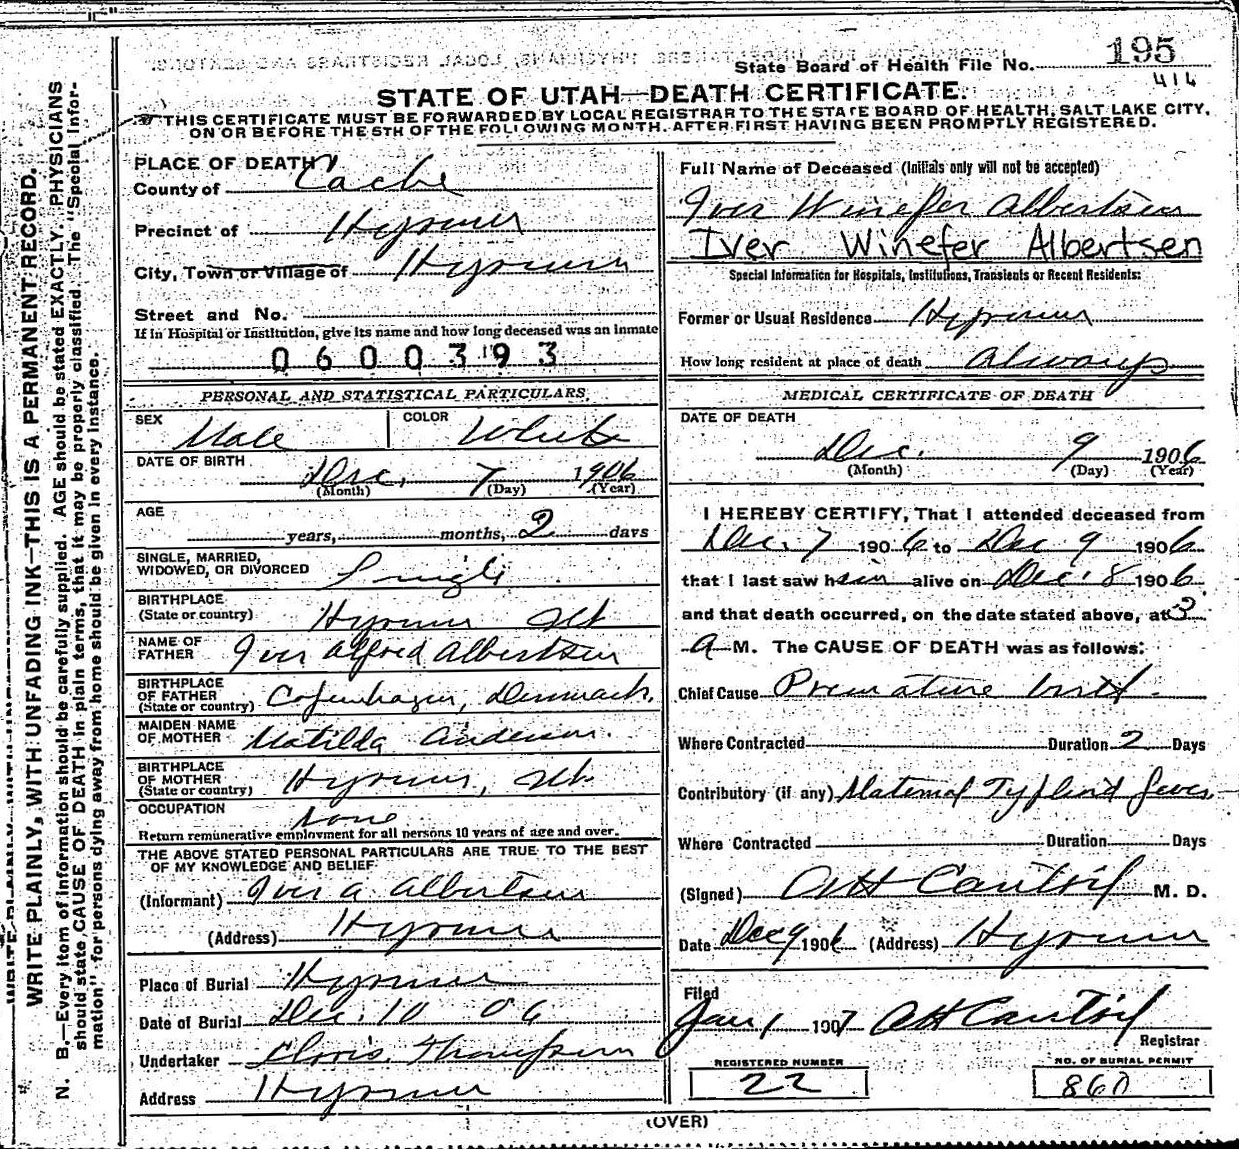 State Board of Health File No. 195
414
STATE OF UTAH—DEATH CERTIFICATE.
THIS CERTIFICATE MUST BE FORWARDED BY LOCAL REGISTRAR TO THE STATE BOARD OF HEALTH, SALT LAKE CITY,
ON OR BEFORE THE 5TH OF THE FOLLOWING MONTH, AFTER FIRST HAVING BEEN PROMPTLY REGISTERED.
WRITE PLAINLY, WITH UNFADING INK—THIS IS A PERMANENT RECORD.
N. B.—Every item of information should be carefully supplied. AGE should be stated EXACTLY. PHYSICIANS
should state CAUSE OF DEATH in plain terms, that it may be properly classified. The "Special Infor-
mation" for persons dying away from home should be given in every instance.
PLACE OF DEATH
County of Cache
Precinct of Hyrum
City, Town or Village of Hyrum
Street and No.
If in Hospital or Institution, give its name and how long deceased was an inmate
0600393
PERSONAL AND STATISTICAL PARTICULARS
SEX Male COLOR White
DATE OF BIRTH Dec. 7 1906
(Month) (Day) (Year)
AGE
years, months, 2 days
SINGLE, MARRIED,
WIDOWED, OR DIVORCED Single
BIRTHPLACE
(State or country) Hyrum Ut
NAME OF
FATHER Iver Alfred Albertsen
BIRTHPLACE
OF FATHER
(State or country) Copenhagen, Denmark.
MAIDEN NAME
OF MOTHER Matilda Anderson.
BIRTHPLACE
OF MOTHER
(State or country) Hyrum, Ut.
OCCUPATION None
Return remunerative employment for all persons 10 years of age and over.
THE ABOVE STATED PERSONAL PARTICULARS ARE TRUE TO THE BEST
OF MY KNOWLEDGE AND BELIEF
(Informant) Iver A. Albertsen
(Address) Hyrum
Place of Burial Hyrum
Date of Burial Dec. 10 06
Undertaker
Address Hyrum
Full Name of Deceased (Initials only will not be accepted)
Iver Winefer Albertsen
Iver Winefer Albertsen
Special Information for Hospitals, Institutions, Transients or Recent Residents:
Former or Usual Residence Hyrum
How long resident at place of death Always
MEDICAL CERTIFICATE OF DEATH
DATE OF DEATH
Dec. 9 1906
(Month) (Day) (Year)
I HEREBY CERTIFY, That I attended deceased from
Dec. 7 1906 to Dec 9 1906
that I last saw him alive on Dec. 8 1906
and that death occurred, on the date stated above, at 3
A M. The CAUSE OF DEATH was as follows:
Chief Cause Premature birth.
Where Contracted Duration 2 Days
Contributory (if any) Maternal Typhoid fever
Where Contracted Duration Days
(Signed) M. D.
Date Dec 9 1906 (Address) Hyrum
Filed
Jan 1 1907
Registrar
REGISTERED NUMBER
22
NO. OF BURIAL PERMIT
860
(OVER)